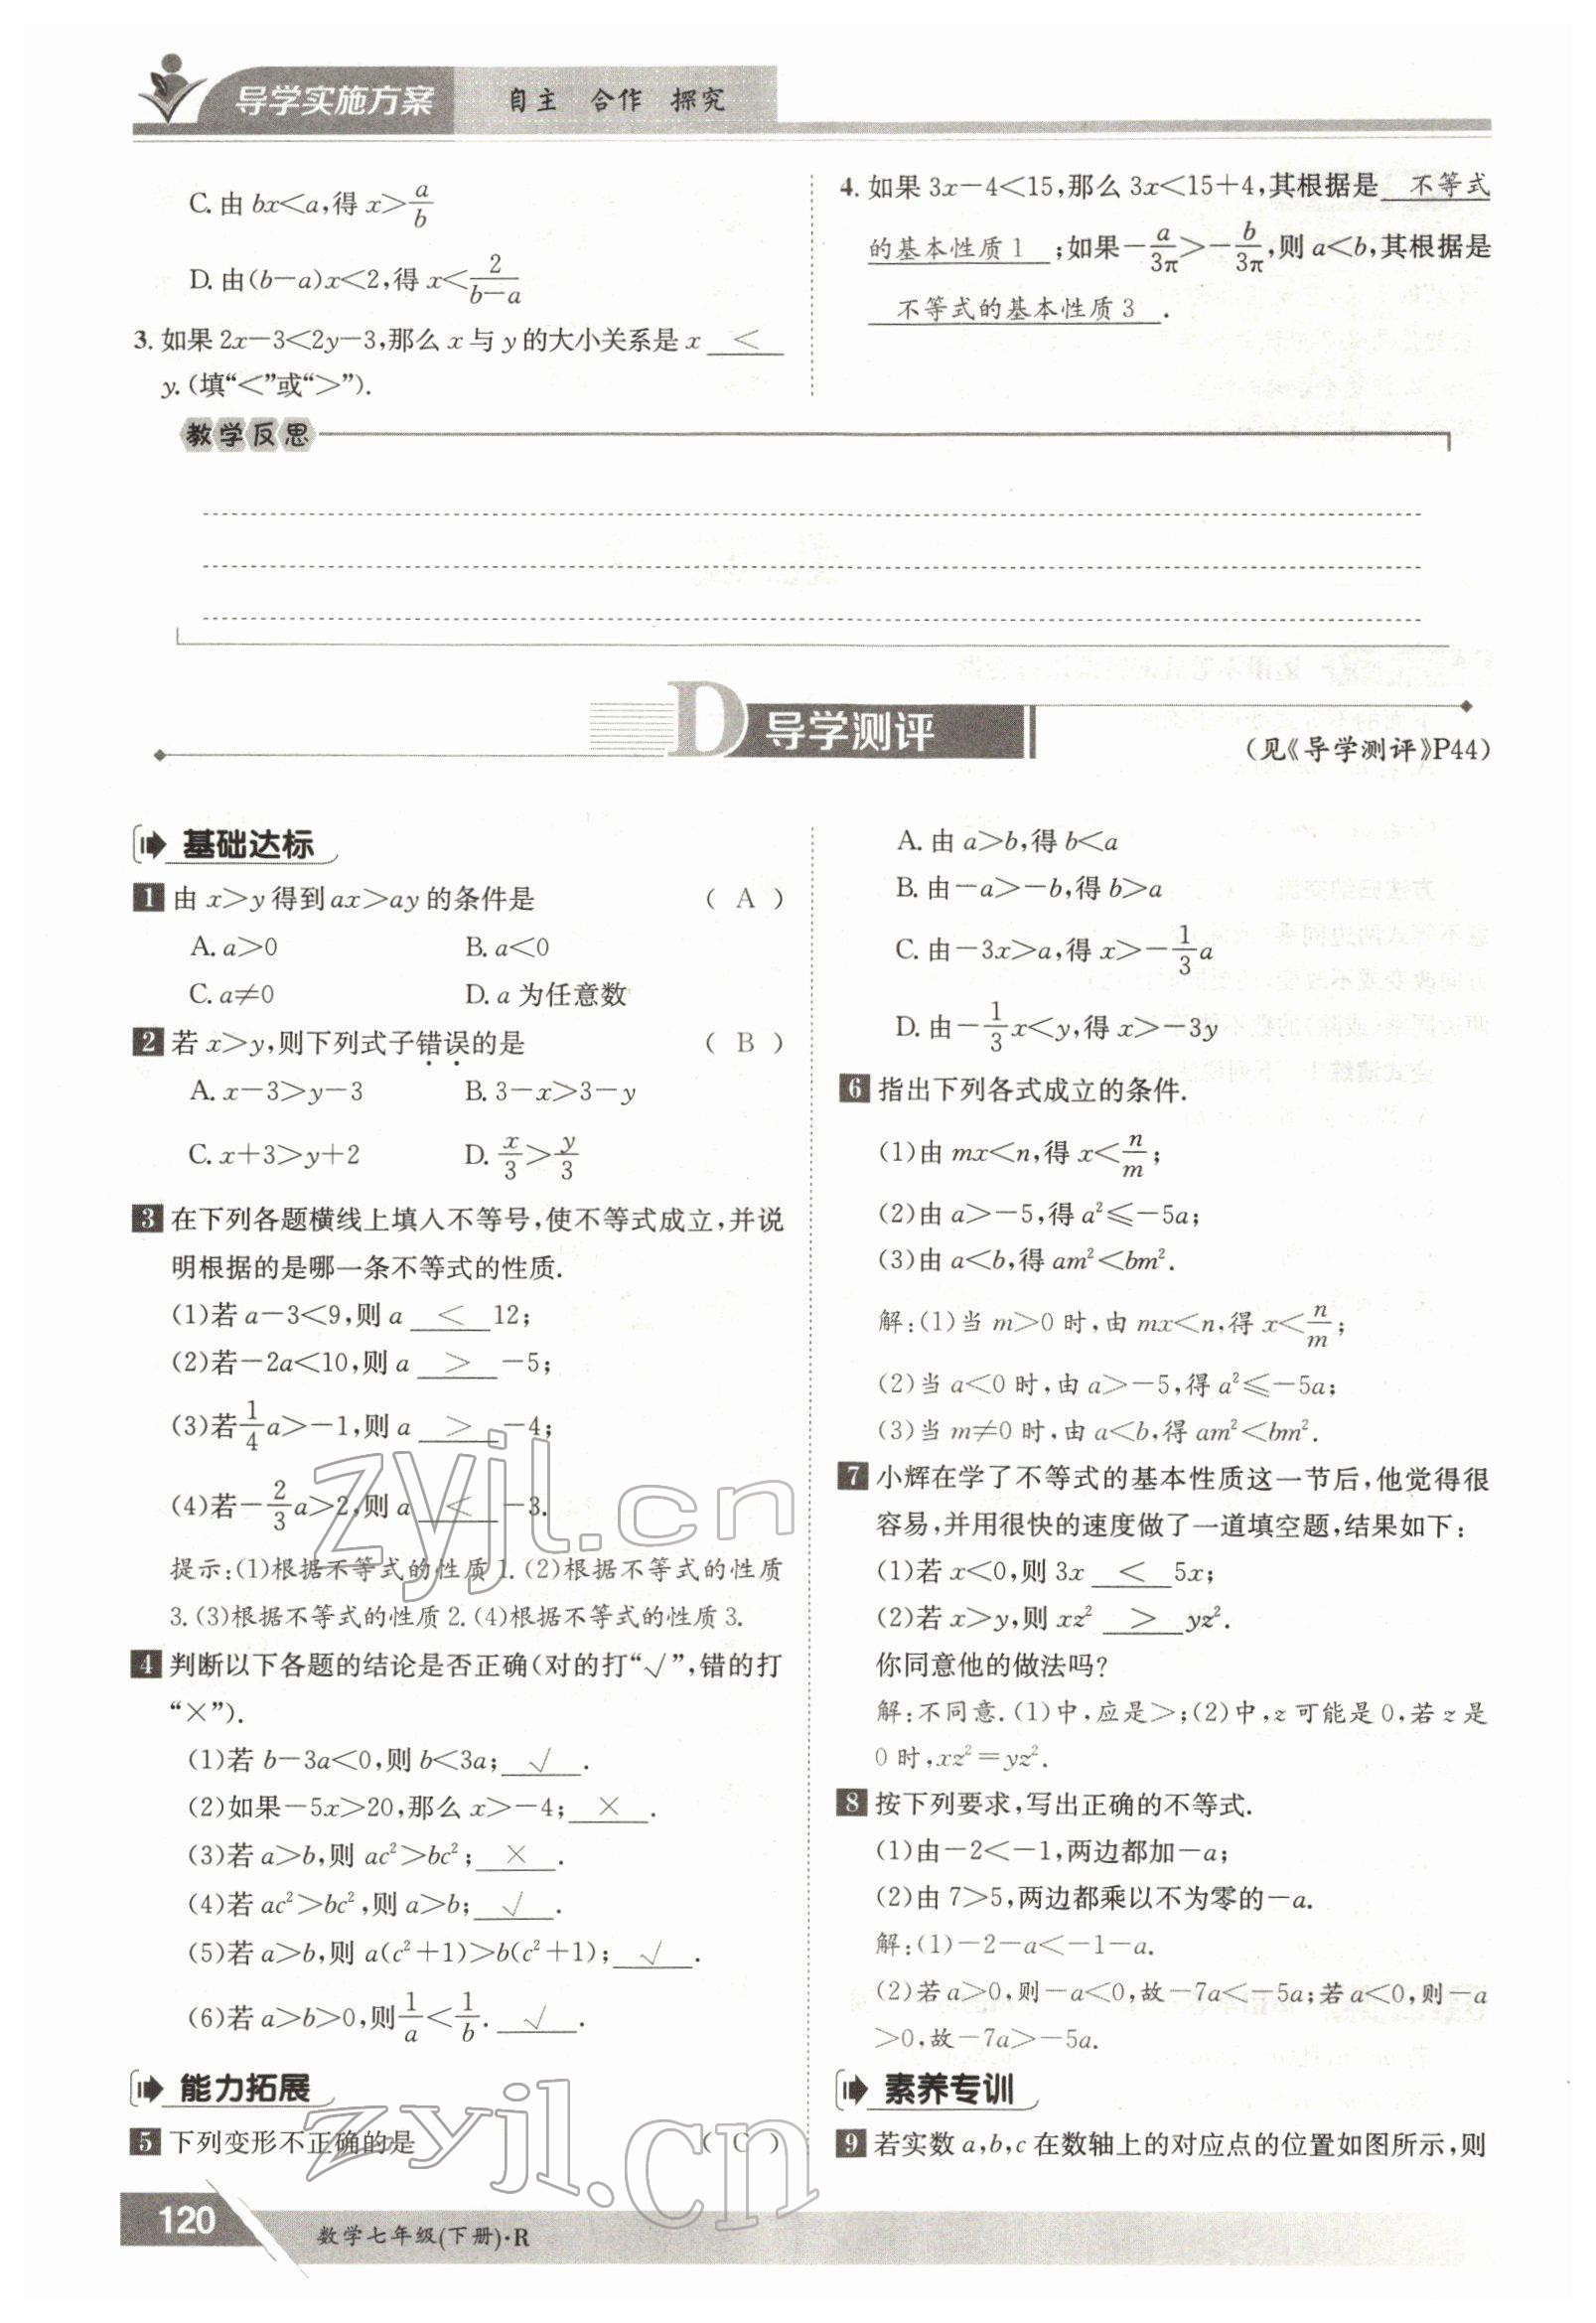 导学实施方案 自主 合作 探究
C. 由 bx<a,得 x>a/b
D. 由(b-a)x<2,得 x<2/(b-a)
3. 如果 2x-3<2y-3,那么 x 与 y 的大小关系是 x < 
y.(填“<”或“>”).
4. 如果 3x-4<15,那么 3x<15+4,其根据是 不等式
的基本性质 1 ;如果-a/3π>-b/3π,则 a<b,其根据是
不等式的基本性质 3 .
教学反思
D 导学测评
(见《导学测评》P44)
基础达标
1 由 x>y 得到 ax>ay 的条件是 ( A )
A. a>0 B. a<0
C. a≠0 D. a 为任意数
2 若 x>y,则下列式子错误的是 ( B )
A. x-3>y-3 B. 3-x>3-y
C. x+3>y+2 D. x/3>y/3
3 在下列各题横线上填入不等号,使不等式成立,并说
明根据的是哪一条不等式的性质.
(1)若 a-3<9,则 a < 12;
(2)若-2a<10,则 a > -5;
(3)若1/4a>-1,则 a > -4;
(4)若-2/3a>2,则 a < -3.
提示:(1)根据不等式的性质 1.(2)根据不等式的性质
3.(3)根据不等式的性质 2.(4)根据不等式的性质 3.
4 判断以下各题的结论是否正确(对的打“√”,错的打
“×”).
(1)若 b-3a<0,则 b<3a; √ .
(2)如果-5x>20,那么 x>-4; × .
(3)若 a>b,则 ac²>bc²; × .
(4)若 ac²>bc²,则 a>b; √ .
(5)若 a>b,则 a(c²+1)>b(c²+1); √ .
(6)若 a>b>0,则1/a<1/b. √ .
能力拓展
5 下列变形不正确的是 ( C )
A. 由 a>b,得 b<a
B. 由-a>-b,得 b>a
C. 由-3x>a,得 x>-1/3a
D. 由-1/3x<y,得 x>-3y
6 指出下列各式成立的条件.
(1)由 mx<n,得 x<n/m;
(2)由 a>-5,得 a²≤-5a;
(3)由 a<b,得 am²<bm².
解:(1)当 m>0 时,由 mx<n,得 x<n/m;
(2)当 a<0 时,由 a>-5,得 a²≤-5a;
(3)当 m≠0 时,由 a<b,得 am²<bm².
7 小辉在学了不等式的基本性质这一节后,他觉得很
容易,并用很快的速度做了一道填空题,结果如下:
(1)若 x<0,则 3x < 5x;
(2)若 x>y,则 xz² > yz².
你同意他的做法吗?
解:不同意.(1)中,应是>;(2)中,z 可能是 0,若 z 是
0 时,xz²=yz².
8 按下列要求,写出正确的不等式.
(1)由-2<-1,两边都加-a;
(2)由 7>5,两边都乘以不为零的-a.
解:(1)-2-a<-1-a.
(2)若 a>0,则-a<0,故-7a<-5a;若 a<0,则-a
>0,故-7a>-5a.
素养专训
9 若实数 a,b,c 在数轴上的对应点的位置如图所示,则
120 数学七年级(下册)·R
zyjl.cn
zyjl.cn